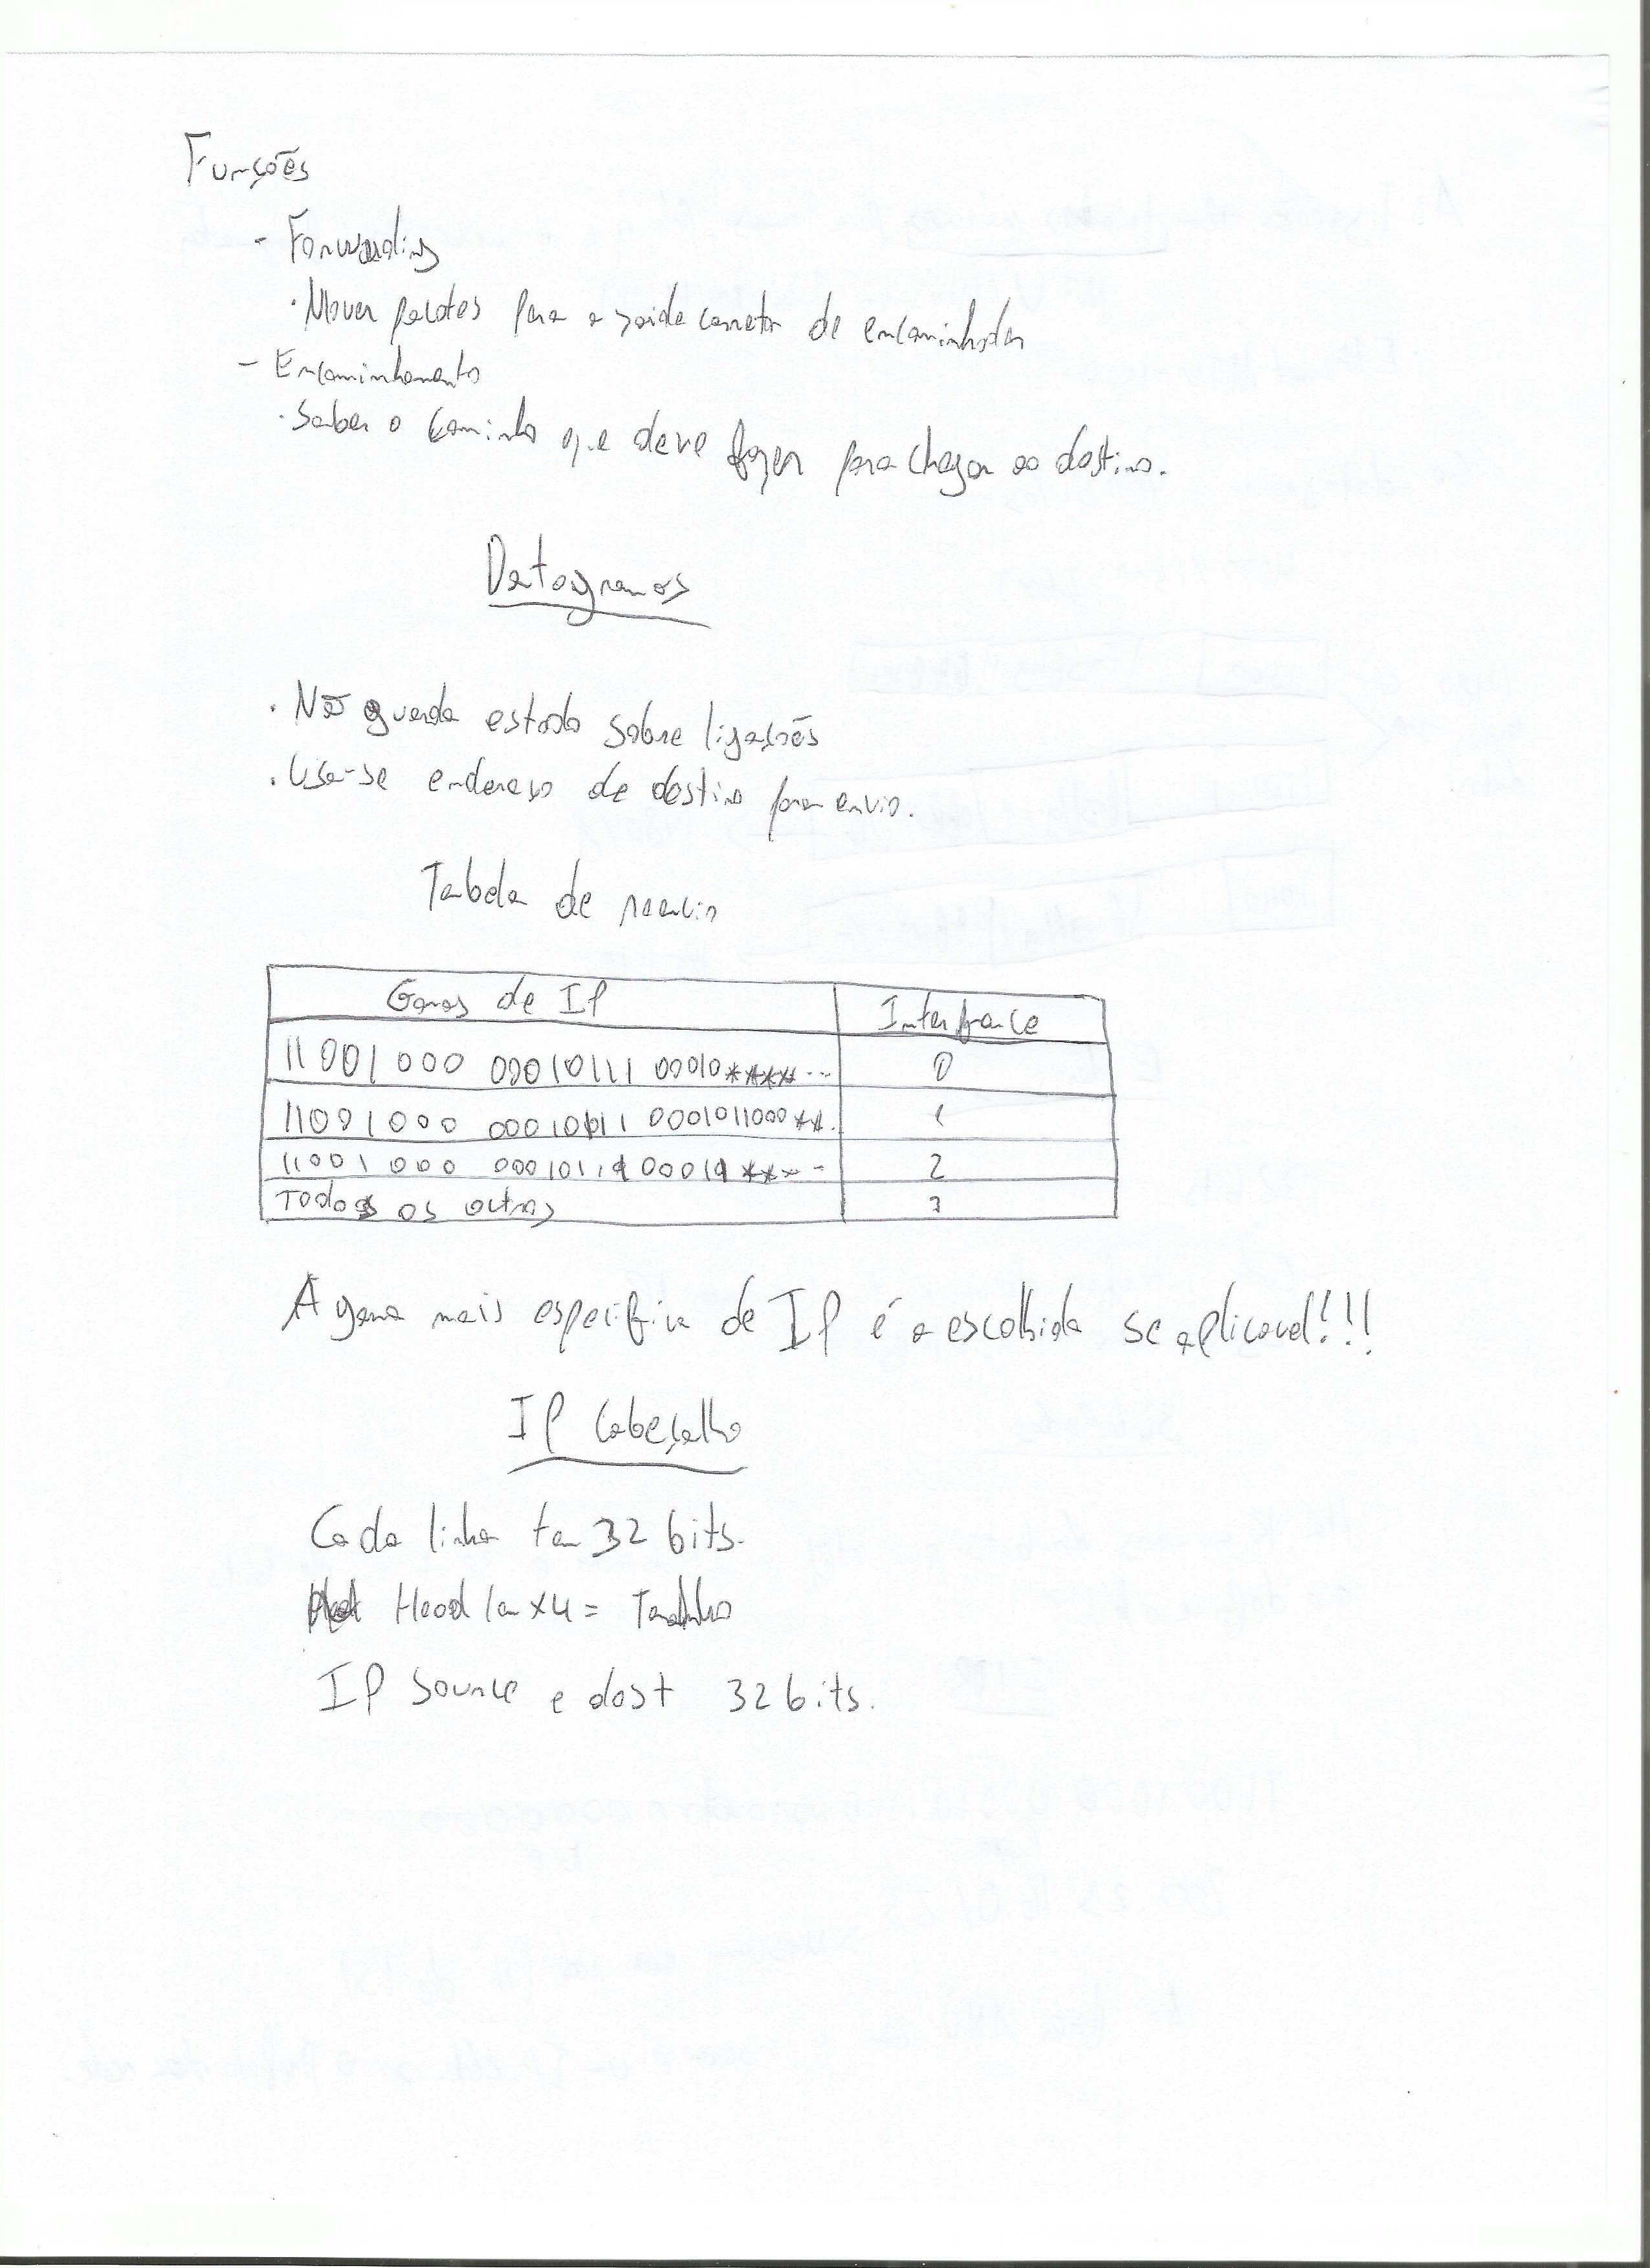 Funções
- Forwarding
· Mover pacotes para a saida correta de encaminhador
- Encaminhamento
· Saber o caminho que deve fazer para chegar ao destino.
Datagramas
· Não guarda estado sobre ligações
· Usa-se endereço de destino para envio.
Tabela de reenvio
Gamas de IP Interface
11001000 00010111 00010****... 0
11001000 00010111 0001011000**. 1
11001000 00010111 00011**--- 2
Todos os outros 3
A gama mais especifica de IP é a escolhida se aplicavel!!!
IP Cabeçalho
Cada linha tem 32 bits.
Head len x4 = Tamanho
IP source e dest 32 bits.